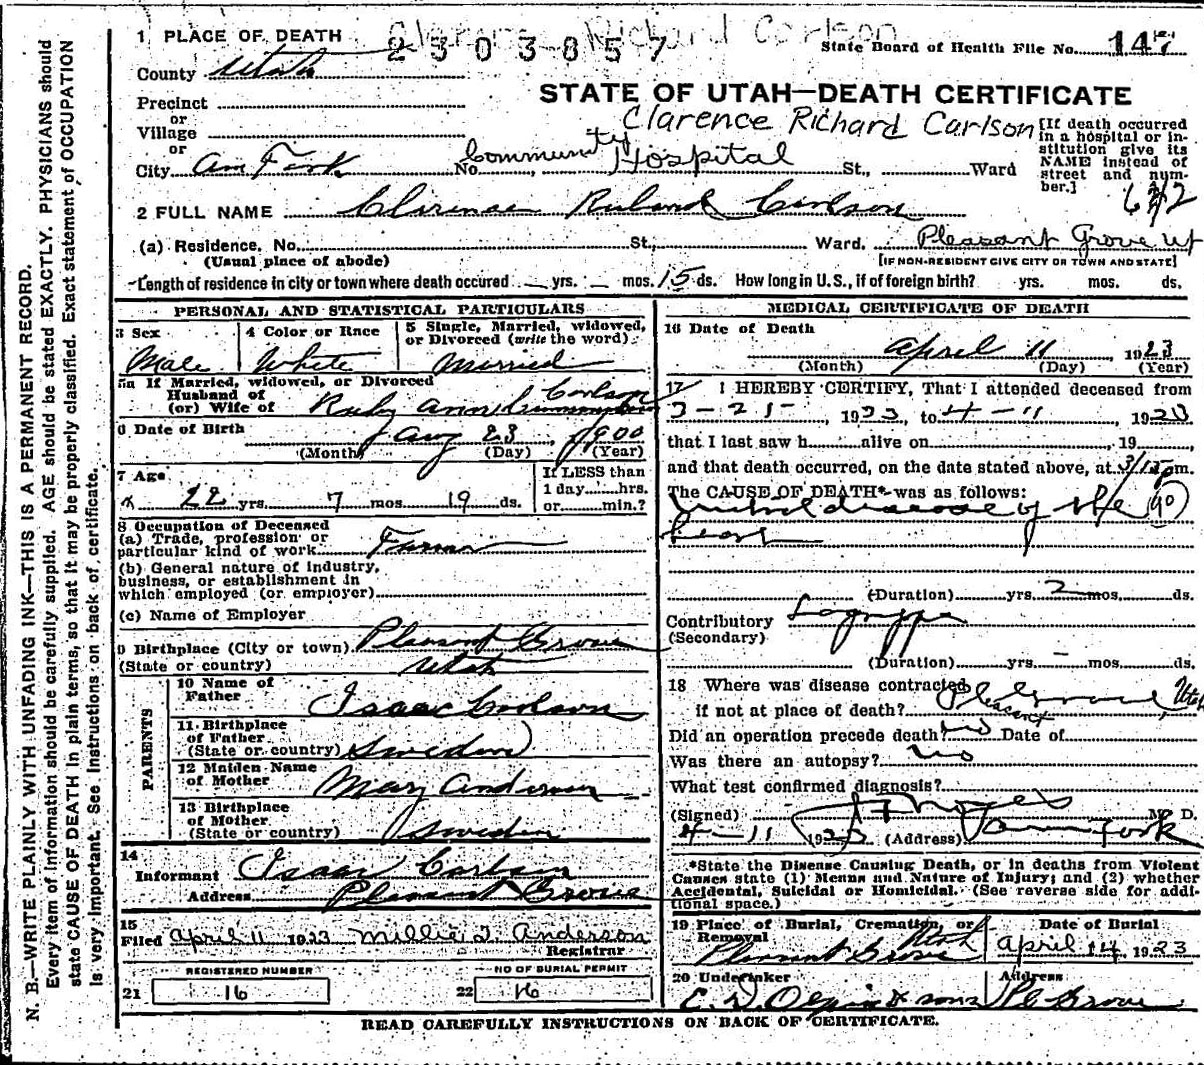 Clarence Richard Carlson
1 PLACE OF DEATH 2303857 State Board of Health File No. 147
County Utah
STATE OF UTAH—DEATH CERTIFICATE
Precinct
or
Village
or
Clarence Richard Carlson
City Am Fork No. Community Hospital St., Ward
[If death occurred
in a hospital or in-
stitution give its
NAME instead of
street and num-
ber.]
2 FULL NAME Clarence Richard Carlson
(a) Residence. No. St., Ward. Pleasant Grove Ut
(Usual place of abode) [IF NON-RESIDENT GIVE CITY OR TOWN AND STATE]
Length of residence in city or town where death occured yrs. mos. 15 ds. How long in U.S., if of foreign birth? yrs. mos. ds.
PERSONAL AND STATISTICAL PARTICULARS
3 Sex 4 Color or Race 5 Single, Married, widowed,
or Divorced (write the word)
Male White Married
5a If Married, widowed, or Divorced
Husband of
(or) Wife of Ruby Ann Carlson
6 Date of Birth Aug 23, 1900
(Month) (Day) (Year)
7 Age If LESS than
1 day hrs.
22 yrs. 7 mos. 19 ds. or min.?
8 Occupation of Deceased
(a) Trade, profession or
particular kind of work Farmer
(b) General nature of industry,
business, or establishment in
which employed (or employer)
(c) Name of Employer
9 Birthplace (City or town) Pleasant Grove
(State or country) Utah
PARENTS
10 Name of
Father Isaac Carlson
11 Birthplace
of Father
(State or country) Sweden
12 Maiden Name
of Mother Mary Anderson
13 Birthplace
of Mother
(State or country) Sweden
14
Informant Isaac Carlson
Address Pleasant Grove
15
Filed April 11 1923 Millie T. Anderson
Registrar
REGISTERED NUMBER NO OF BURIAL PERMIT
21 16 22 16
MEDICAL CERTIFICATE OF DEATH
16 Date of Death
April 11, 1923
(Month) (Day) (Year)
17 I HEREBY CERTIFY, That I attended deceased from
3-25-1923, to 4-11 1923
that I last saw h alive on , 19
and that death occurred, on the date stated above, at 3/15 pm.
The CAUSE OF DEATH* was as follows:
Mitral disease of the 90
heart
(Duration) yrs. 2 mos. ds.
Contributory Lagrippe
(Secondary)
(Duration) yrs. mos. ds.
18 Where was disease contracted
if not at place of death? Pleasant Grove, Utah
Did an operation precede death no Date of
Was there an autopsy? no
What test confirmed diagnosis?
(Signed) Noyes M. D.
4-11 1923 (Address) Am Fork
*State the Disease Causing Death, or in deaths from Violent
Causes state (1) Means and Nature of Injury; and (2) whether
Accidental, Suicidal or Homicidal. (See reverse side for addi-
tional space.)
19 Place of Burial, Cremation, or
Removal Date of Burial
Pleasant Grove Utah April 14, 1923
20 Undertaker Address
& sons Pl Grove
READ CAREFULLY INSTRUCTIONS ON BACK OF CERTIFICATE.
N. B.—WRITE PLAINLY WITH UNFADING INK—THIS IS A PERMANENT RECORD.
Every item of information should be carefully supplied. AGE should be stated EXACTLY. PHYSICIANS should
state CAUSE OF DEATH in plain terms, so that it may be properly classified. Exact statement of OCCUPATION
is very important. See instructions on back of certificate.